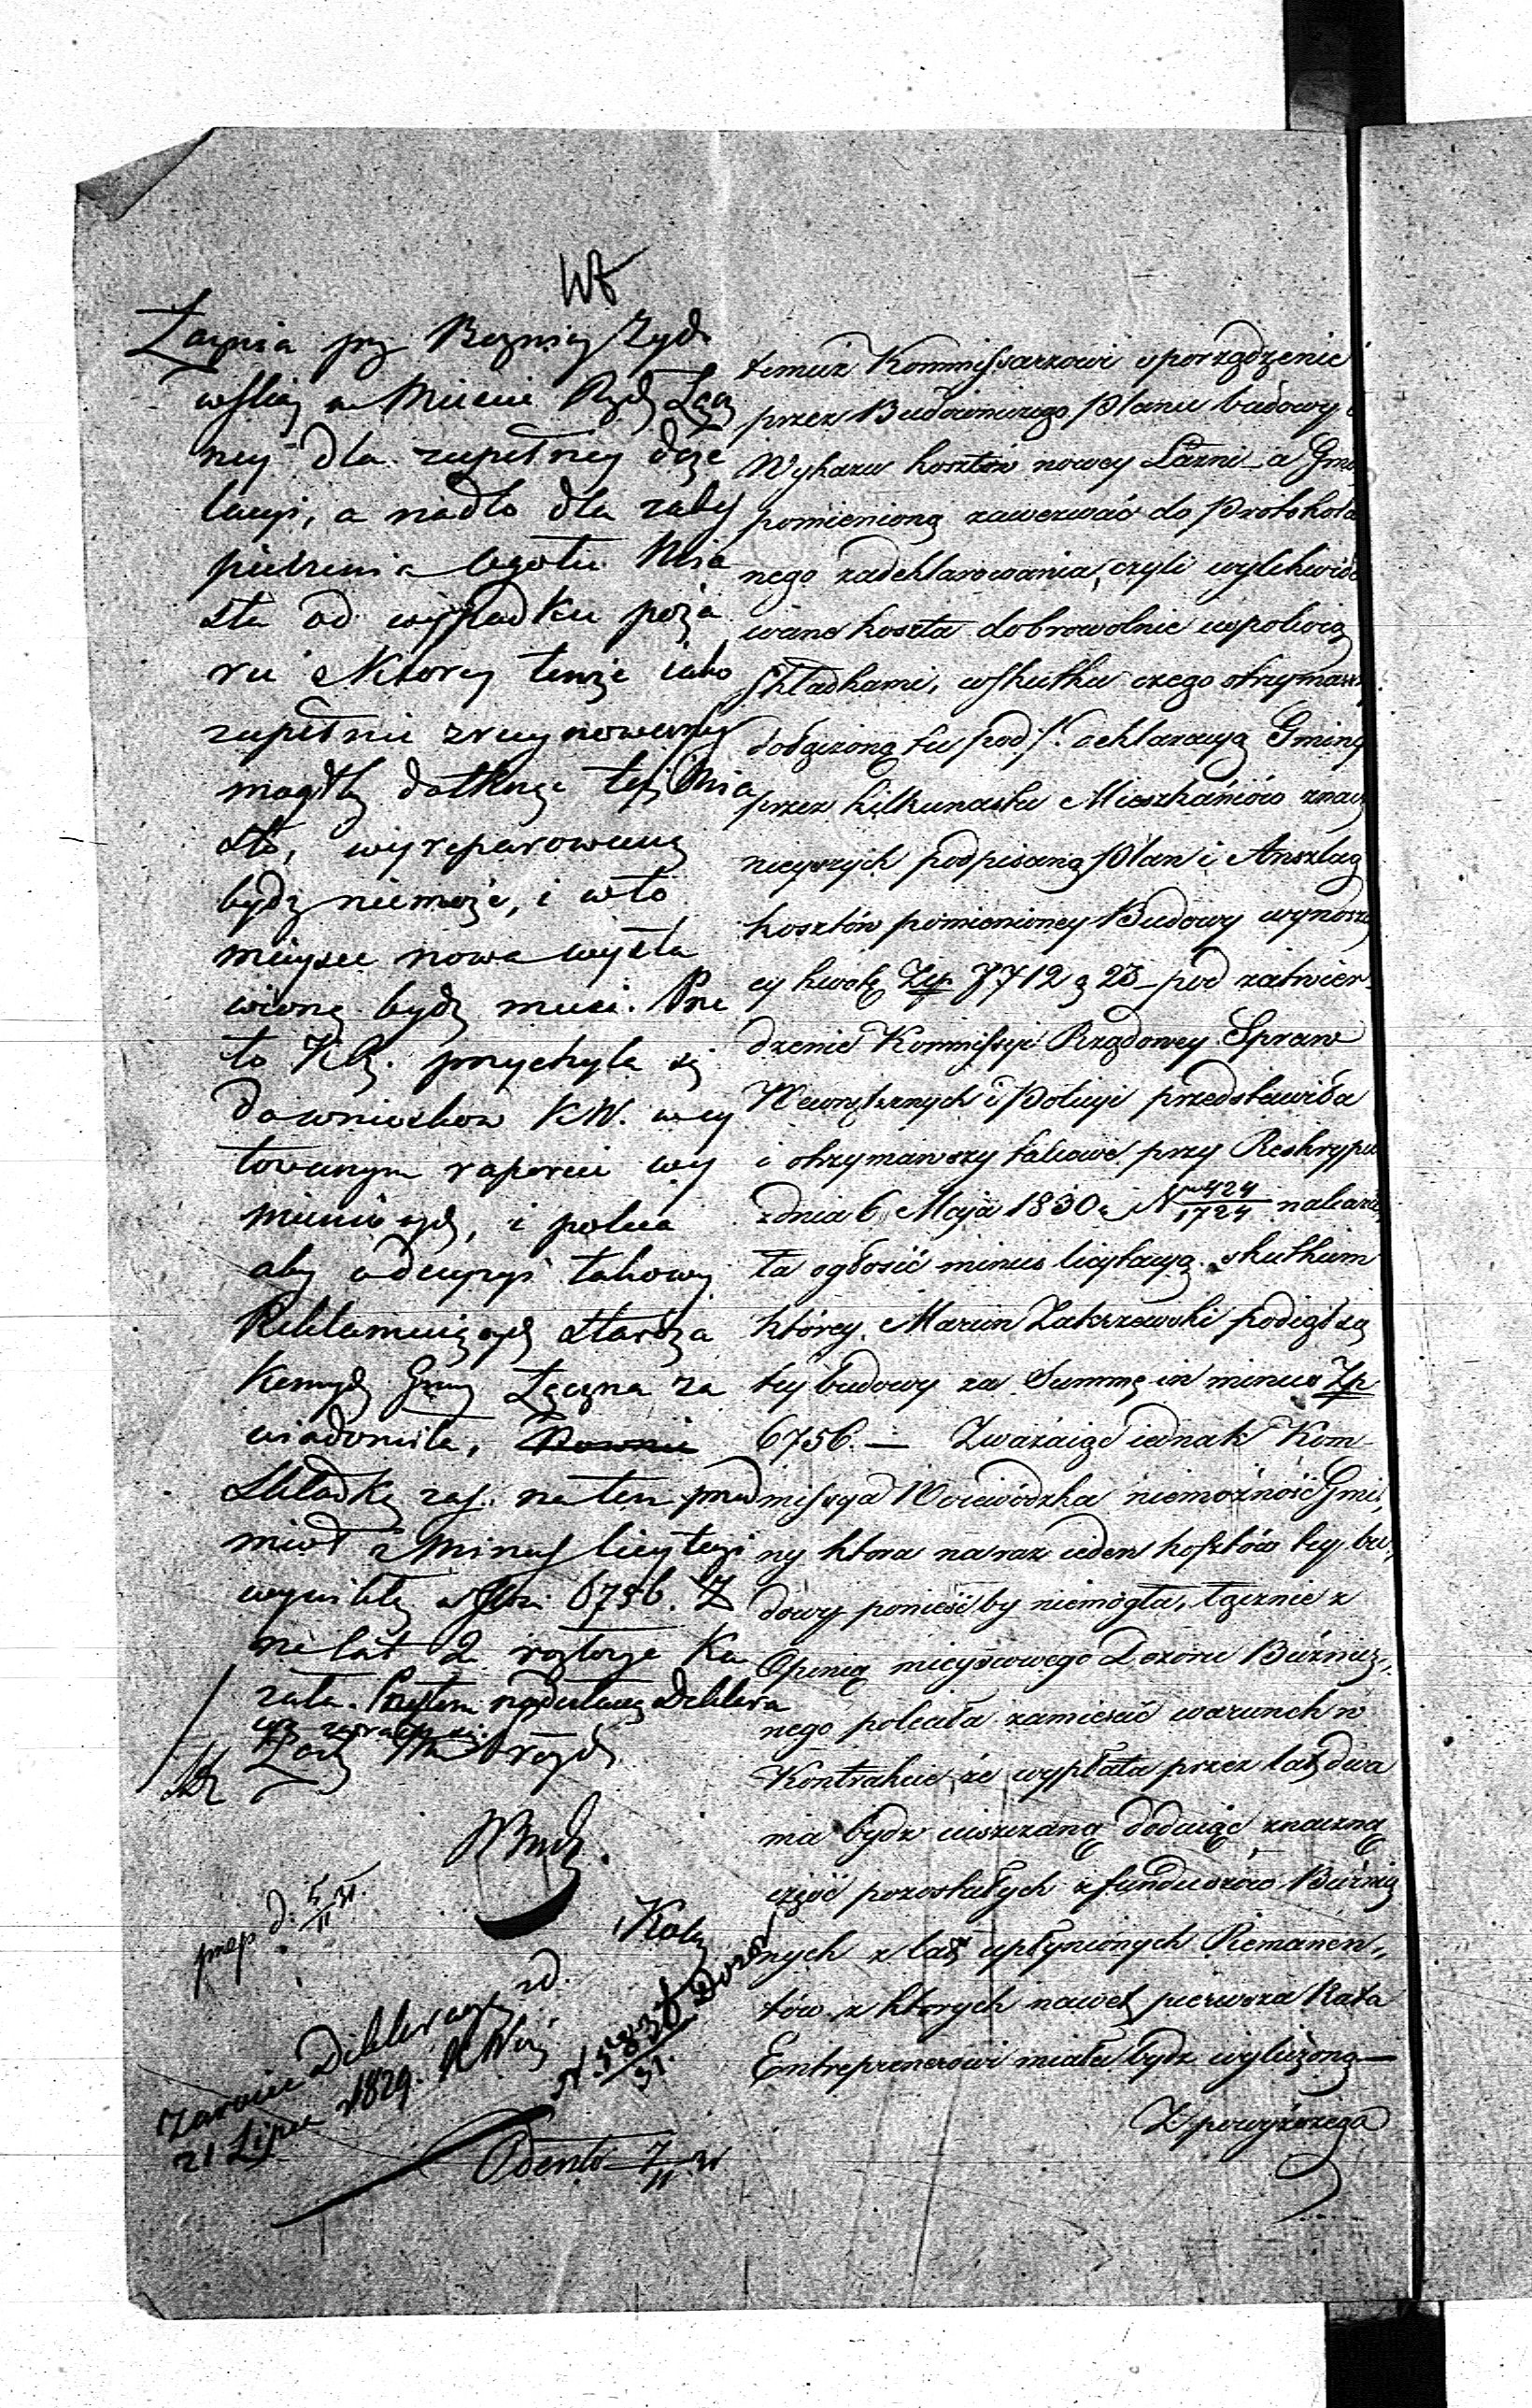 Łaznia przy Boznicy Żydo
wskiey w Miescie Rząd. Łęcz
ney dla zupełney deze
lacyi, a nadto dla zabez
pieczenia ogołu Mia
sta od wypadku poża
ru ktorey tenże iako
zupełnie zruynowaney
mogłby dotknąć też Mia
sto, wyreparowaną
bydz niemoże, i w to
mieysce nowa wysta
wioną bydz musi. Prze
to KR. przychyla się
do wniosków KW. w cy
towanym raporcie wy
mienionych, i poleca
aby o decyzyi takowey
Reklamuiących starsza
Gminy Łęczna za
wiadomiła,
Składkę zaś na ten przed
miot z minus licytacyi
wynikłą w Złt. 6756.
na lat 2 rozłożyć ka
zała. Przytem nadesłaną deklara
cyą zwraca się.
przep d. 5/11 31.
Zwrócić Deklaracyą zd.
21 Lipca 1829. K Woj
N. 5830/31. Dozor
Odesło 7/11 31
temuż Kommissarzowi sporządzenie
przez Budowniczego Planu budowy i
Wykazu kosztów nowey Łazni – a Gmi
pomienioną zawezwać do Protokola
nego zadeklarowania, czyli wylikwido
wane koszta dobrowolnie uspokoią
składkami, w skutku czego otrzymawszy
dołączoną tu pod ∕. deklaracyą Gminy
przez kilkunastu Mieszkańców znacz
nieyszych podpisaną Plan i Anszlag
kosztów pomienioney Budowy wynoszą
cy kwotę Złp 7712 g 23 – pod zatwier
dzenie Kommissyi Rządowey Spraw
Wewnętrznych i Policyi przedstawiła
i otrzymawszy takowe przy Reskrypcie
z dnia 6 Maja 1830 r N 424/1724 naleca
ta ogłosić minus licytacyą skutkiem
którey Marcin Zakrzewski podiął się
tey budowy za Summę in minus Złp
6756. — Zważaiąc iednak Kom
missya Woiewódzka niemożność Gmi
ny ktora na raz ieden kosztów tey bu
dowy ponieść by niemogła, łącznie z
Opinią mieyscowego Dozoru Bóżnicz
nego poleciła zamieścić warunek w
Kontrakcie, że wypłata przez lat dwa
ma bydz uiszczaną dodaiąc znaczną
część pozostałych z funduszów Bóżnicz
nych z lat upłynionych Remanen
tów z ktorych nawet pierwsza Rata
Entreprenerowi miała bydz wyliczoną —
Z powyższego